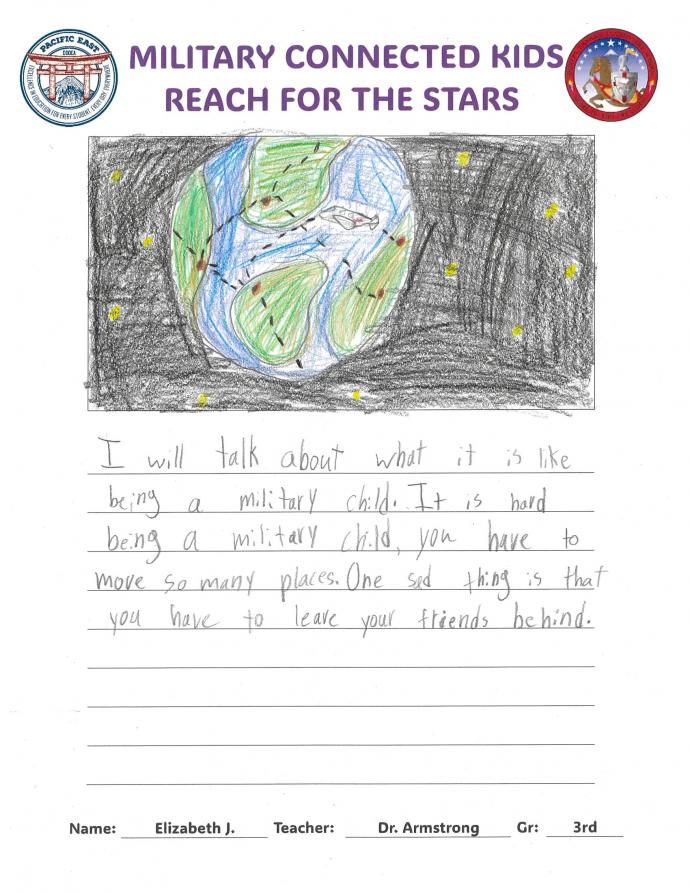 PACIFIC EAST
DODEA
EXCELLENCE IN EDUCATION FOR EVERY STUDENT, EVERY DAY, EVERYWHERE
MILITARY CONNECTED KIDS
REACH FOR THE STARS
I will talk about what it is like
being a military child. It is hard
being a military child, you have to
move so many places. One sad thing is that
you have to leave your friends behind.
Name: Elizabeth J. Teacher: Dr. Armstrong Gr: 3rd